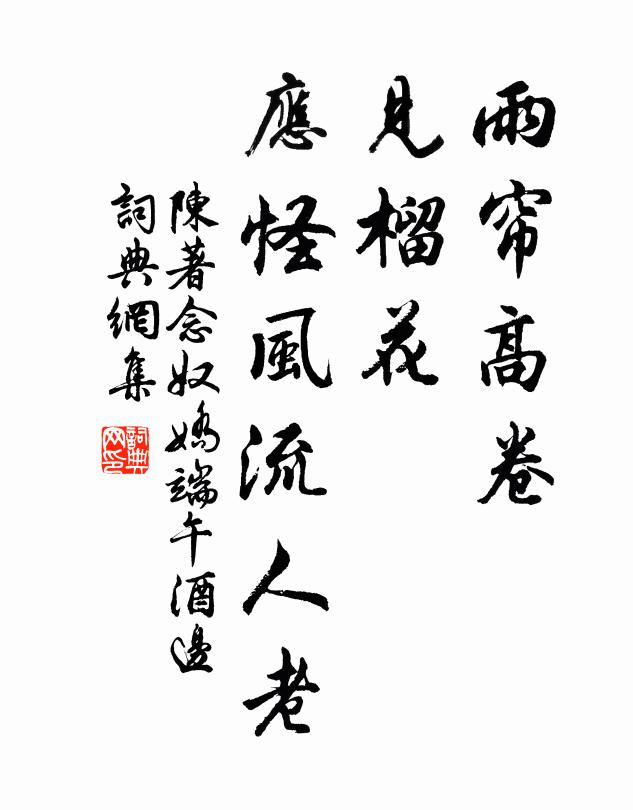 雨帘高卷
見榴花
應怪風流人老
陳著念奴嬌端午酒邊
詞典網集
詞典
网印